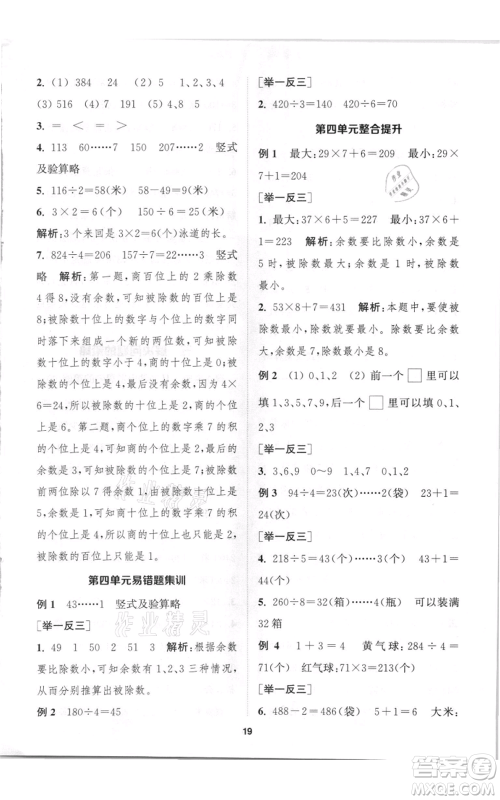 2. (1) 384　24　(2) 5　1、2、4
(3) 516　(4) 8、9　1、2、3
3. =　<　=
4. 113　60……7　150　207……2　竖式
及验算略
5. 116÷2=58(米)　58÷2=29(米)
6. 3×2=6(个)　54÷6=9(米)
解析：3个来回是3×2=6(个)泳道的长。
7. 824÷4=206　157÷7=22……3　竖式
略　解析：第一题，商百位上的2乘除数
4得8，可知被除数的百位上是
8；被除数十位上的数字与个位上的数字
同时落下来组成一个新的两位数，可知
被除数十位上的数字小于4，商十位上
的数字是0；商个位上的数字乘4得
24，可知商个位上的数字是6，继而4×
6=24，可知被除数的十位上是2，个位
上是4。第二题，商十位上的2乘除数
7得14，可知14的个位上是4；被除数
的前两位除以7得2余1，可知被除数
的百位上是1，十位上是5；最后的余数
是3，可知商个位上的数字乘7的积的
个位上是4，可知商个位上的数字是2，
被除数的个位上是7。
第四单元易错题集训
例1　43……1　竖式及验算略
[举一反三]
1. 49　1　50　2　51　3　解析：余数
要比除数小，可能有1、2、3这三种情况，
从而分别推算出被除数。
例2　180÷4=45
[举一反三]
2. 420÷3=140　420÷6=70
第四单元整合提升
例1　最大：29×7+6=209　最小：29×
7+1=204
[举一反三]
1. 最大：37×6+5=227　最小：37×6
+1=223　解析：余数要比除数小，可知
余数最大是5，最小是1。
2. 53×8+7=431　解析：本题中，要
使被除数最小，除数就要最小。因为余
数是7，余数要比除数小，所以除数要比
7大，除数最小是8。
例2　(1) 0、1、2　(2) 前一个□里可
以填1、3、5、7、9，后一个□里可以填0、1、
2、3
[举一反三]
3. 3、6、9　0～9　1、3、7、9　0、1、2
例3　94÷4=23(次)……2(袋)　23+1=
24(次)
[举一反三]
4. 218÷5=43(个)……3(个)　43+1=
44(个)
5. 260÷8=32(箱)……4(瓶)　可以装满
32箱
例4　1+3=4　黄气球：284÷4=71(个)
红气球：71×3=213(个)
[举一反三]
6. 488-2=486(袋)　5+1=6　大米：
19